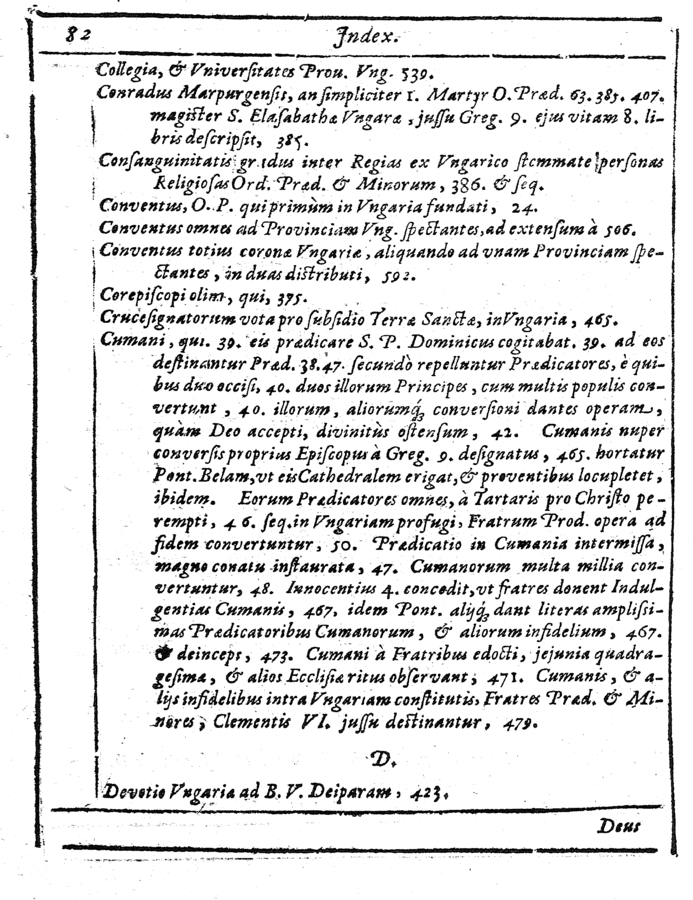 82 Index.
Collegia, & Vniverſitates Prou. Vng. 539.
Conradus Marpurgenſit, an ſimpliciter 1. Martyr O. Præd. 63. 385. 407.
magiſter S. Elaſabathæ Vngaræ, juſſu Greg. 9. ejus vitam 8. li-
bris deſcripſit, 385.
Conſanguinitatis gradus inter Regias ex Vngarico ſtemmate perſonas
Religioſas Ord. Præd. & Minorum, 386. & ſeq.
Conventus, O. P. qui primùm in Vngaria fundati, 24.
Conventus omnes ad Provinciam Vng. ſpectantes, ad extenſum à 506.
Conventus totius coronæ Vngariæ, aliquando ad vnam Provinciam ſpe-
ctantes, in duas diſtributi, 592.
Corepiſcopi olim, qui, 375.
Cruceſignatorum vota pro ſubſidio Terræ Sanctæ, in Vngaria, 465.
Cumani, qui. 39. eis prædicare S. P. Dominicus cogitabat. 39. ad eos
deſtinantur Præd. 38. 47. ſecundò repelluntur Prædicatores, è qui-
bus duo occiſi, 40. duos illorum Principes, cum multis populis con-
vertunt, 40. illorum, aliorumq́; converſioni dantes operam,
quàm Deo accepti, divinitùs oſtenſum, 42. Cumanis nuper
converſis proprius Epiſcopus à Greg. 9. deſignatus, 465. hortatur
Pont. Belam, vt eis Cathedralem erigat, & proventibus locupletet,
ibidem. Eorum Prædicatores omnes, à Tartaris pro Chriſto pe-
rempti, 46. ſeq. in Vngariam profugi, Fratrum Prod. opera ad
fidem convertuntur, 50. Prædicatio in Cumania intermiſſa,
magno conatu inſtaurata, 47. Cumanorum multa millia con-
vertuntur, 48. Innocentius 4. concedit, vt fratres donent Indul-
gentias Cumanis, 467. idem Pont. alijq́; dant literas ampliſſi-
mas Prædicatoribus Cumanorum, & aliorum infidelium, 467.
& deincept, 473. Cumani à Fratribus edocti, jejunia quadra-
geſima, & alios Eccliſiæ ritus obſervant, 471. Cumanis, & a-
lijs infidelibus intra Vngariam conſtitutis, Fratres Præd. & Mi-
nores, Clementis VI. juſſu deſtinantur, 479.
D.
Devotio Vngaria ad B. V. Deiparam, 423.
Deus